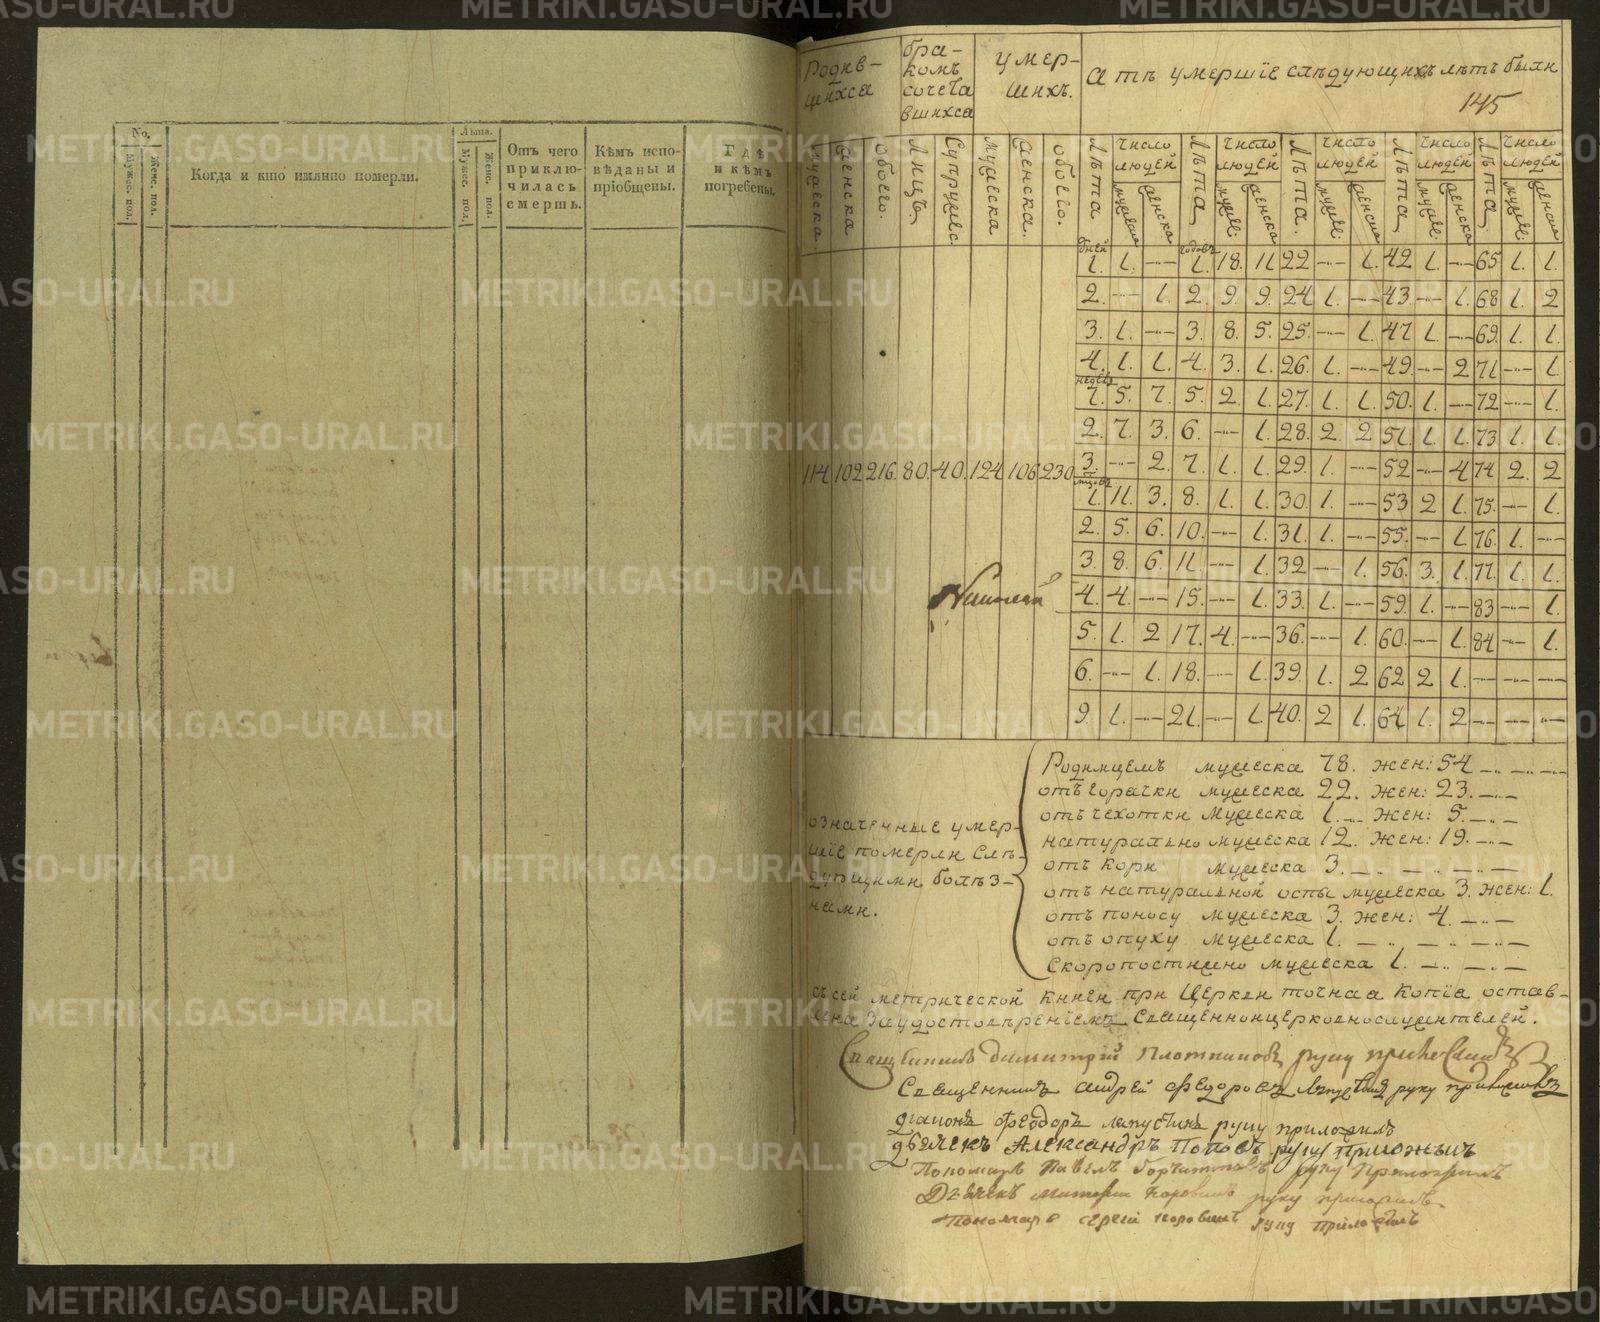 No.
Мужес. пол.
Женс. пол.
Когда и кто имянно померли.
Лѣта.
Мужес. пол.
Женс. пол.
Отъ чего
приклю-
чилась
смерть.
Кѣмъ испо-
вѣданы и
пріобщены.
Гдѣ
и кѣмъ
погребены.
Родив-
шихса
бра-
комъ
сочета
вшихса
умер-
шихъ.
А тѣ умершіе слѣдующихъ лѣтъ были
145
мужеска
женска
обоего.
лицъ
супружес.
мужеска
женска.
обоего.
Лѣта
число людей
мужеска
женска
Лѣта
число людей
мужес:
женска
Лѣта.
число людей
мужес:
женска
Лѣта
число людей
мужес:
женска
Лѣта
число людей
мужес:
женска
дней 1. 1. — годовъ 1. 18. 11. 22 — 1. 42 1. — 65. 1. 1.
2. — 1. 2. 9. 9. 24 1. — 43. — 1. 68 1. 2
3. 1. — 3. 8. 5. 25. — 1. 47 1. — 69. 1. 1.
4. 1. 1. 4. 3. 1. 26. 1. — 49. — 2 71 — 1.
недель 1. 5. 7. 5. 2. 1. 27. 1. 1. 50. 1. — 72 — 1.
2. 7. 3. 6. — 1. 28. 2. 2 51. 1. 1. 73 1. 1.
114 102 216. 80. 40. 124 106 230 3. — 2. 7. 1. 1. 29. 1. — 52 — 4 74 2. 2
1. 11. 3. 8. 1. 1. 30. 1. — 53 2 1. 75. — 1.
2. 5. 6. 10. — 1. 31. 1. — 55. — 1. 76. 1. —
3. 8. 6. 11. — 1. 32 — 1. 56. 3. 1. 77. 1. 1.
4. 4. — 15. — 1. 33. 1. — 59. 1. — 83 — 1.
5. 1. 2 17. 4. — 36. — 1. 60. — 1. 84 — 1.
6. — 1. 18. — 1. 39. 1. 2 62 2 1. — — —
9. 1. — 21. — 1. 40. 2 1. 64 1. 2 — — —
означенные умер-
шіе померли слѣ-
дующими болѣз-
нами.
Родимцемъ мужеска 78. жен: 54
отъ горачки мужеска 22. жен: 23.
отъ чехотки мужеска 1. жен: 5.
натурально мужеска 12. жен: 19.
отъ кори мужеска 3.
отъ натуральной оспы мужеска 3. жен: 1.
отъ поносу мужеска 3. жен: 4.
отъ опуху мужеска 1.
Скоропостижно мужеска 1.
съ сей метрической книги при Церкви точнаа Копіа остав-
лена заудостовѣреніемъ Священноицерковнослужителей.
Священникъ Димитрій Плотниковъ руку приложилъ
Священникъ андрей Федоровъ руку приложилъ
діаконъ Феодоръ лапустинъ руку приложилъ
дьячекъ Александръ Поповъ руку Приложилъ
Пономарь Павелъ руку Приложилъ
Дьячекъ Коровинъ руку приложилъ
Пономарь сергій Коровинъ руку приложилъ
METRIKI.GASO-URAL.RU